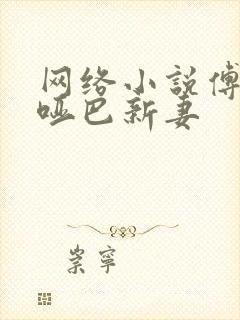 网络小説傅
哑巴新妻
崇寧